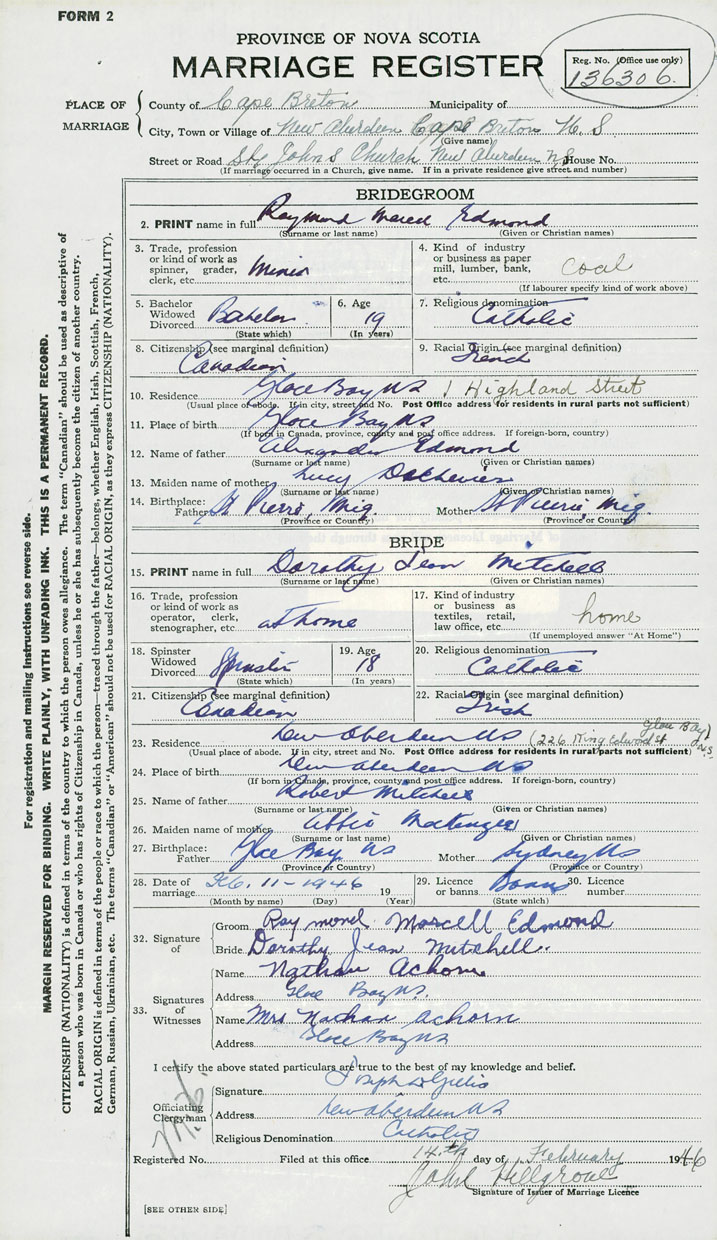 FORM 2
PROVINCE OF NOVA SCOTIA
MARRIAGE REGISTER
Reg. No. (Office use only)
136306.
PLACE OF MARRIAGE
County of Cape Breton Municipality of
City, Town or Village of New Aberdeen Cape Breton N. S
(Give name)
Street or Road St Johns Church New Aberdeen N.S. House No.
(If marriage occurred in a Church, give name. If in a private residence give street and number)
BRIDEGROOM
2. PRINT name in full Raymond Edmond
(Surname or last name) (Given or Christian names)
3. Trade, profession or kind of work as spinner, grader, clerk, etc. Miner
4. Kind of industry or business as paper mill, lumber, bank, etc. coal
(If labourer specify kind of work above)
5. Bachelor Widowed Divorced Bachelor
(State which)
6. Age 19
(In years)
7. Religious denomination Catholic
8. Citizenship (see marginal definition) Canadian
9. Racial Origin (see marginal definition) French
10. Residence Glace Bay NS 1 Highland Street
(Usual place of abode. If in city, street and No. Post Office address for residents in rural parts not sufficient)
11. Place of birth Glace Bay NS
(If born in Canada, province, county and post office address. If foreign-born, country)
12. Name of father Alexander Edmond
(Surname or last name) (Given or Christian names)
13. Maiden name of mother Lucy
(Surname or last name) (Given or Christian names)
14. Birthplace: Father St Pierre, Miq. Mother St Pierre, Miq.
(Province or Country) (Province or Country)
BRIDE
15. PRINT name in full Dorothy Jean Mitchell
(Surname or last name) (Given or Christian names)
16. Trade, profession or kind of work as operator, clerk, stenographer, etc. at home
17. Kind of industry or business as textiles, retail, law office, etc. home
(If unemployed answer "At Home")
18. Spinster Widowed Divorced Spinster
(State which)
19. Age 18
(In years)
20. Religious denomination Catholic
21. Citizenship (see marginal definition) Canadian
22. Racial Origin (see marginal definition) Irish
23. Residence New Aberdeen NS (226 King Edward St Glace Bay N.S.)
(Usual place of abode. If in city, street and No. Post Office address for residents in rural parts not sufficient)
24. Place of birth New Aberdeen NS
(If born in Canada, province, county and post office address. If foreign-born, country)
25. Name of father Robert Mitchell
(Surname or last name) (Given or Christian names)
26. Maiden name of mother MacKenzie
(Surname or last name) (Given or Christian names)
27. Birthplace: Father Glace Bay NS Mother Sydney NS
(Province or Country) (Province or Country)
28. Date of marriage Feb. 11-1946 19
(Month by name) (Day) (Year)
29. Licence or banns Banns
(State which)
30. Licence number
32. Signature of
Groom Raymond Marcell Edmond
Bride Dorothy Jean Mitchell.
33. Signatures of Witnesses
Name Nathan Achorn
Address Glace Bay NS.
Name Mrs Nathan Achorn
Address Glace Bay NS
I certify the above stated particulars are true to the best of my knowledge and belief.
Officiating Clergyman
Signature Joseph
Address New Aberdeen NS
Religious Denomination Catholic
Registered No. Filed at this office 14th day of February 1946
John Hillgrove
Signature of Issuer of Marriage Licence
[SEE OTHER SIDE]
For registration and mailing instructions see reverse side.
MARGIN RESERVED FOR BINDING. WRITE PLAINLY, WITH UNFADING INK. THIS IS A PERMANENT RECORD.
CITIZENSHIP (NATIONALITY) is defined in terms of the country to which the person owes allegiance. The term "Canadian" should be used as descriptive of
a person who was born in Canada or who has rights of Citizenship in Canada, unless he or she has subsequently become the citizen of another country.
RACIAL ORIGIN is defined in terms of the people or race to which the person—traced through the father—belongs, whether English, Irish, Scottish, French,
German, Russian, Ukrainian, etc. The terms "Canadian" or "American" should not be used for RACIAL ORIGIN, as they express CITIZENSHIP (NATIONALITY).